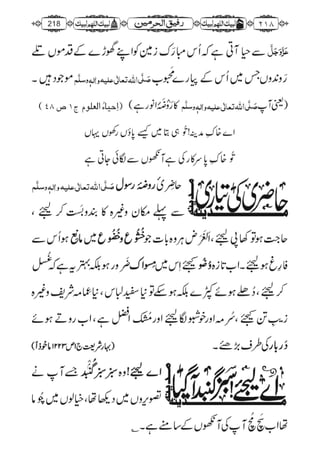 218 لَبَّیْك اَللّٰھُمَّ لَبَّیْك رفیق الحرمین لَبَّیْك اَللّٰھُمَّ لَبَّیْك ۲۱۸
عَزَّوَجَلَّ سے حیا آتی ہے کہ اُس مبارک زمین کو اپنے گھوڑے کے قدموں تلے
روندوں جس میں اُس کے پیارے محبوب صَلَّی اللہ تعالٰی علیہ واٰلہٖ وسلَّم موجود ہیں۔
(یعنی آپ صَلَّی اللہ تعالٰی علیہ واٰلہٖ وسلَّم کا رَوضَۂ انور ہے) (احیاءُ العلوم ج۱ ص ۴۸)
اے خاکِ مدینہ! تو ہی بتا میں کیسے پاؤں رکھوں یہاں
تو خاکِ پا سرکار کی ہے آنکھوں سے لگائی جاتی ہے
حاضِری کی تیّاری
حاضِریٔ روضۂ رسول صَلَّی اللہ تعالٰی علیہ واٰلہٖ وسلَّم
سے پہلے مکان وغیرہ کا بندوبست کر لیجئے،
حاجت ہو تو کھا پی لیجئے، اَلغَرَض ہر وہ بات جو خُشُوع و خُضُوع میں مانِع ہو اُس سے
فارغ ہو لیجئے۔ اب تازہ وُضو کیجئے اِس میں مسواک ضَرور ہو بلکہ بہتر یہ ہے کہ غُسل
کر لیجئے، دُھلے ہوئے کپڑے بلکہ ہو سکے تو نیا سفید لباس، نیا عمامہ شریف وغیرہ
زیبِ تن کیجئے، سُرمہ اور خوشبو لگا لیجئے اور مُشک افضل ہے، اب روتے ہوئے
دربار کی طرف بڑھئے۔ (بہارِشریعت ج۱ص۱۲۲۳ماخوذاً)
اے لیجئے! سبز گنبد آ گیا
اے لیجئے! وہ سبز سبز گُنبد جسے آپ نے
تصویروں میں دیکھا تھا، خیالوں میں چوما
تھا اب سچ مچ آپ کی آنکھوں کے سامنے ہے۔